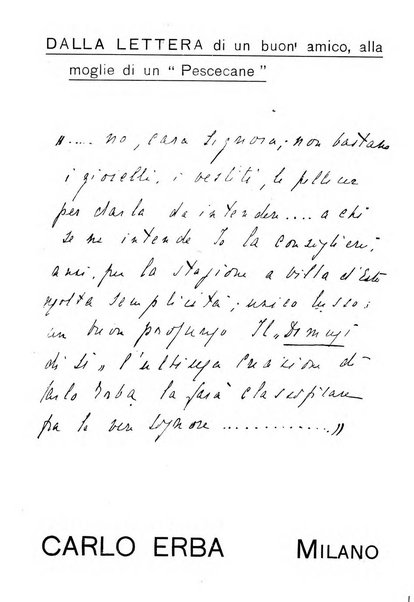 DALLA LETTERA di un buon' amico, alla
moglie di un " Pescecane "
"..... no, cara signora, non bastano
i gioielli, i vestiti, le pellicce
per darla da intendere.... a chi
se ne intende Io la consiglierei,
anzi, per la stagione a villa d'Este
molta semplicità; unico lusso:
un buon profumo Il "Dimmi
di sì" l'ultima creazione di
Carlo Erba la farà classificare
fra le vere signore ............"
CARLO ERBA MILANO